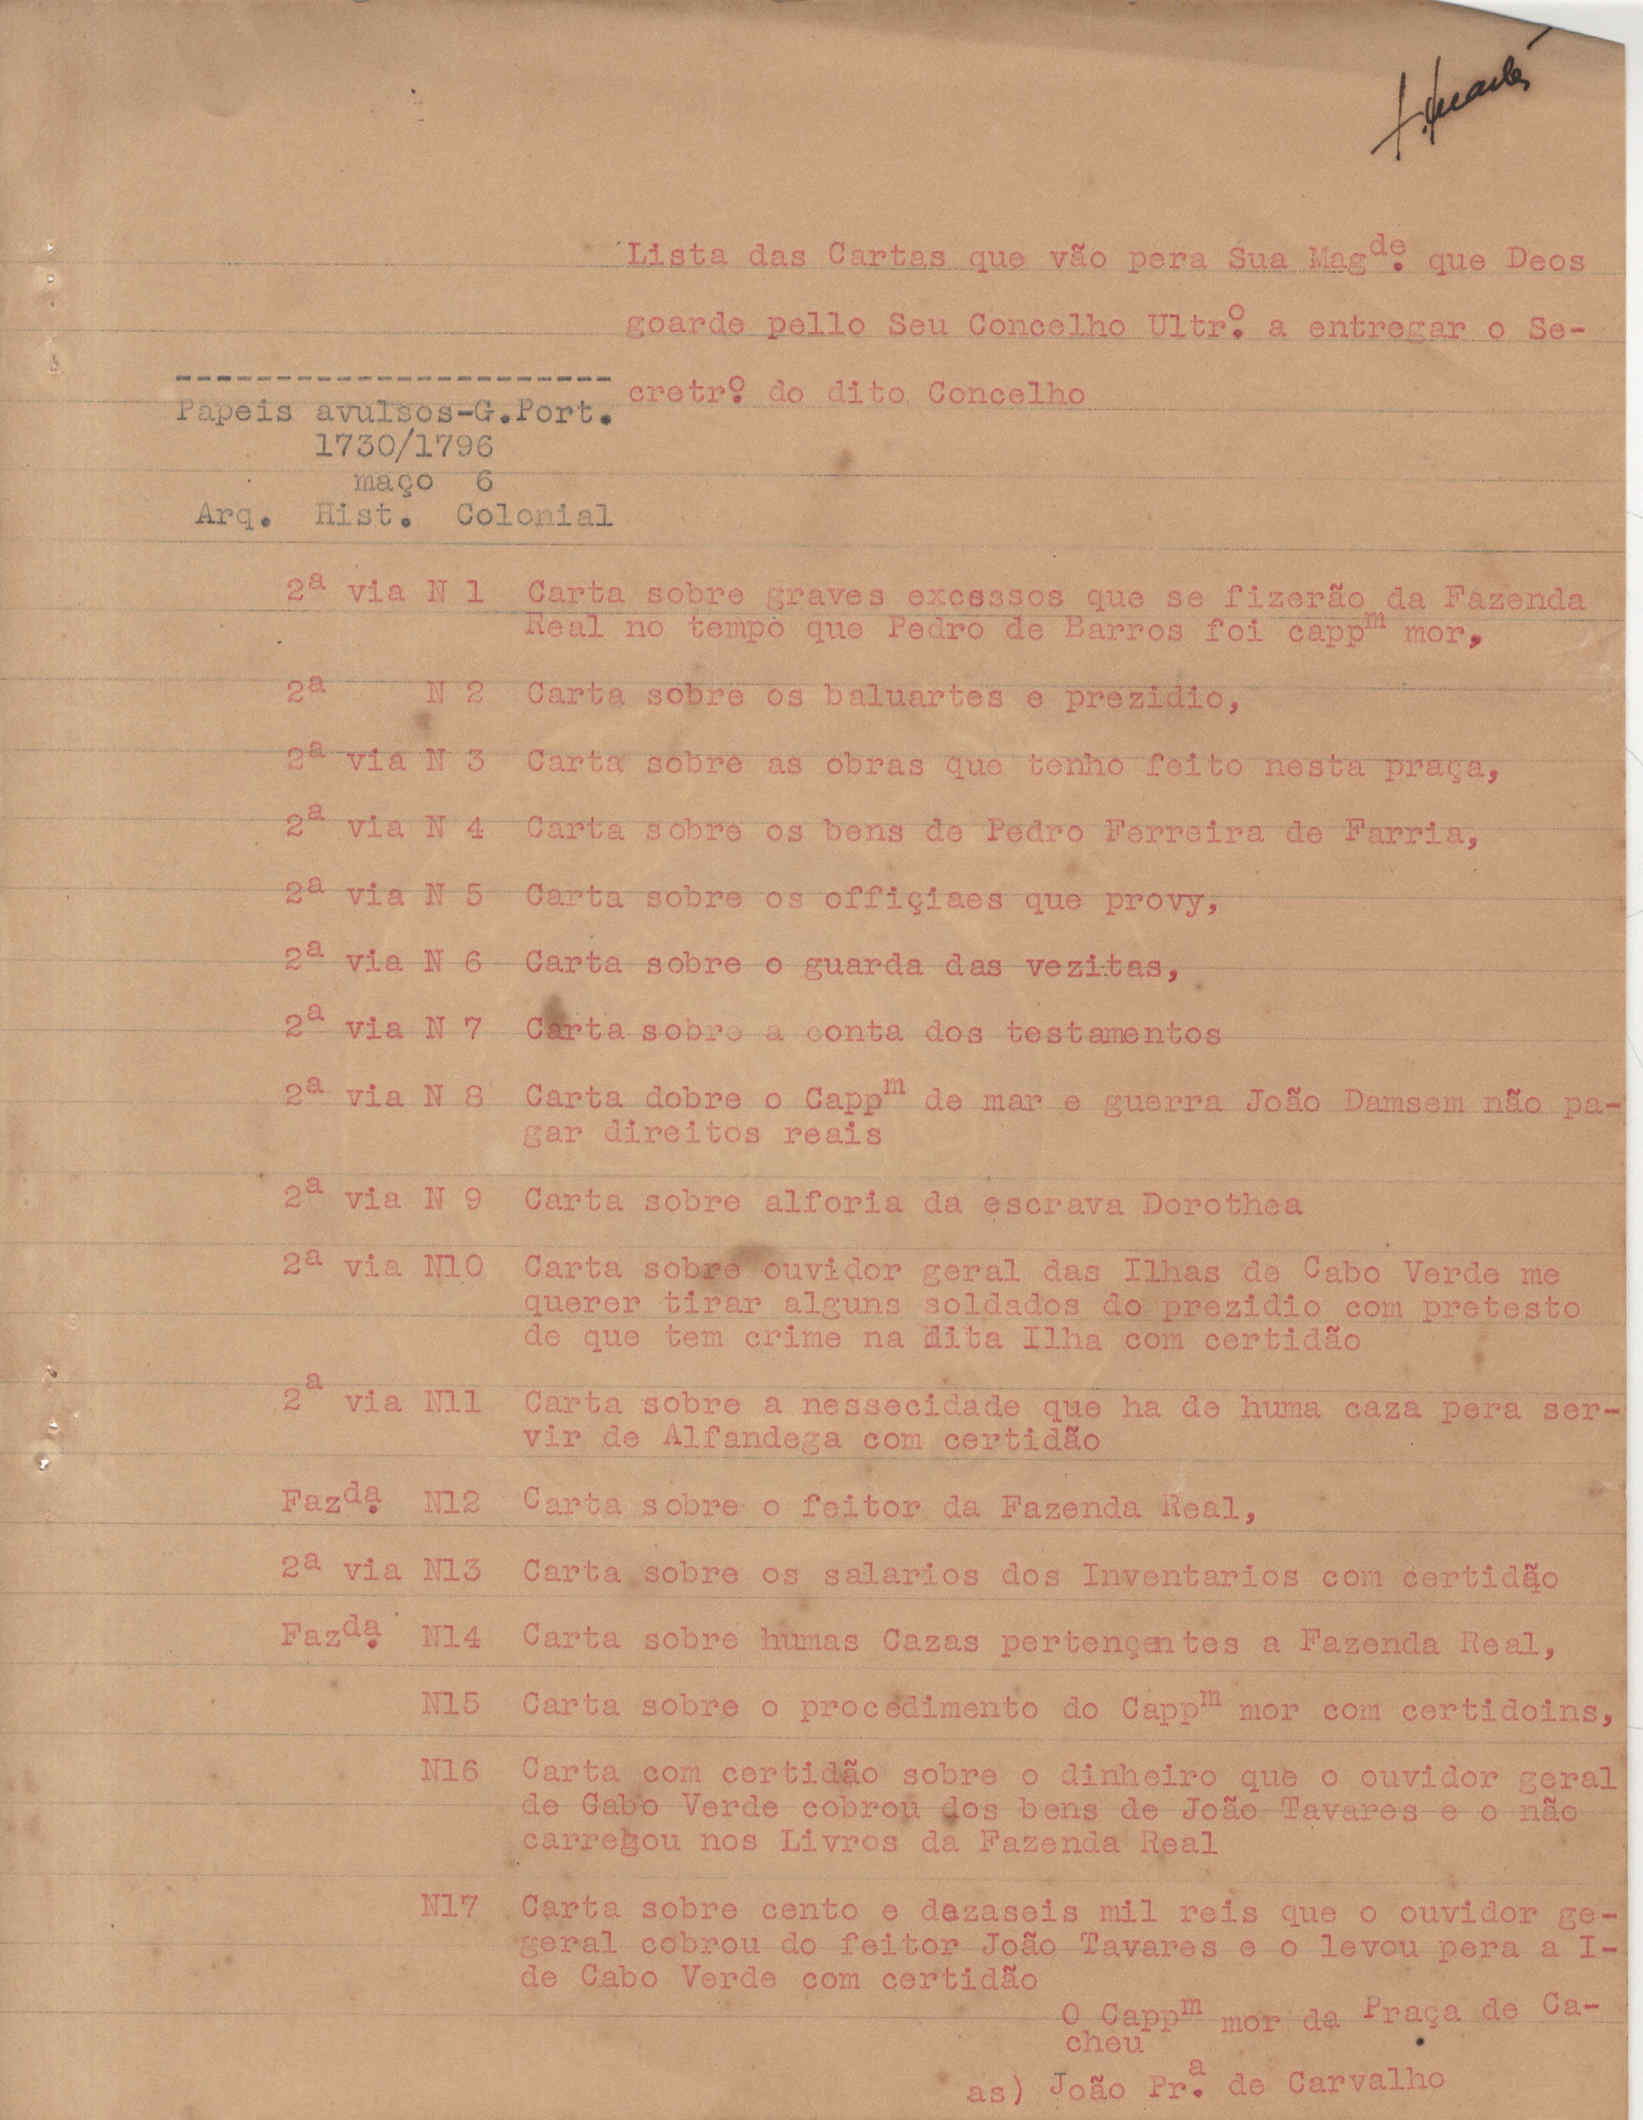 Lista das Cartas que vão pera Sua Magde. que Deos
goarde pello Seu Concelho Ultro. a entregar o Se-
cretro. do dito Concelho
Papeis avulsos-G.Port.
1730/1796
maço 6
Arq. Hist. Colonial
2a via N 1 Carta sobre graves excessos que se fizerão da Fazenda
Real no tempo que Pedro de Barros foi cappm mor,
2a N 2 Carta sobre os baluartes e prezidio,
2a via N 3 Carta sobre as obras que tenho feito nesta praça,
2a via N 4 Carta sobre os bens de Pedro Ferreira de Farria,
2a via N 5 Carta sobre os offiçiaes que provy,
2a via N 6 Carta sobre o guarda das vezitas,
2a via N 7 Carta sobre a conta dos testamentos
2a via N 8 Carta dobre o Cappm de mar e guerra João Damsem não pa-
gar direitos reais
2a via N 9 Carta sobre alforia da escrava Dorothea
2a via N10 Carta sobre ouvidor geral das Ilhas de Cabo Verde me
querer tirar alguns soldados do prezidio com pretesto
de que tem crime na dita Ilha com certidão
2a via N11 Carta sobre a nessecidade que ha de huma caza pera ser-
vir de Alfandega com certidão
Fazda. N12 Carta sobre o feitor da Fazenda Real,
2a via N13 Carta sobre os salarios dos Inventarios com certidão
Fazda. N14 Carta sobre humas Cazas pertençentes a Fazenda Real,
N15 Carta sobre o procedimento do Cappm mor com certidoins,
N16 Carta com certidão sobre o dinheiro que o ouvidor geral
de Cabo Verde cobrou dos bens de João Tavares e o não
carregou nos Livros da Fazenda Real
N17 Carta sobre cento e dezaseis mil reis que o ouvidor ge-
geral cobrou do feitor João Tavares e o levou pera a I-
de Cabo Verde com certidão
O Cappm mor da Praça de Ca-
cheu
as) João Pra. de Carvalho